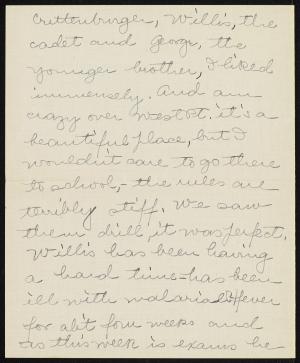 Crittenburger, Willis, the
cadet and George, the
younger brother, I liked
immensely. And am
crazy over West Pt. it's a
beautiful place, but I
wouldn't care to go there
to school,- the rules are
terribly stiff. We saw
them drill, it was perfect.
Willis has been having
a hard time-has been
ill with malarial fever
for ab't four weeks and
as this week is exams he